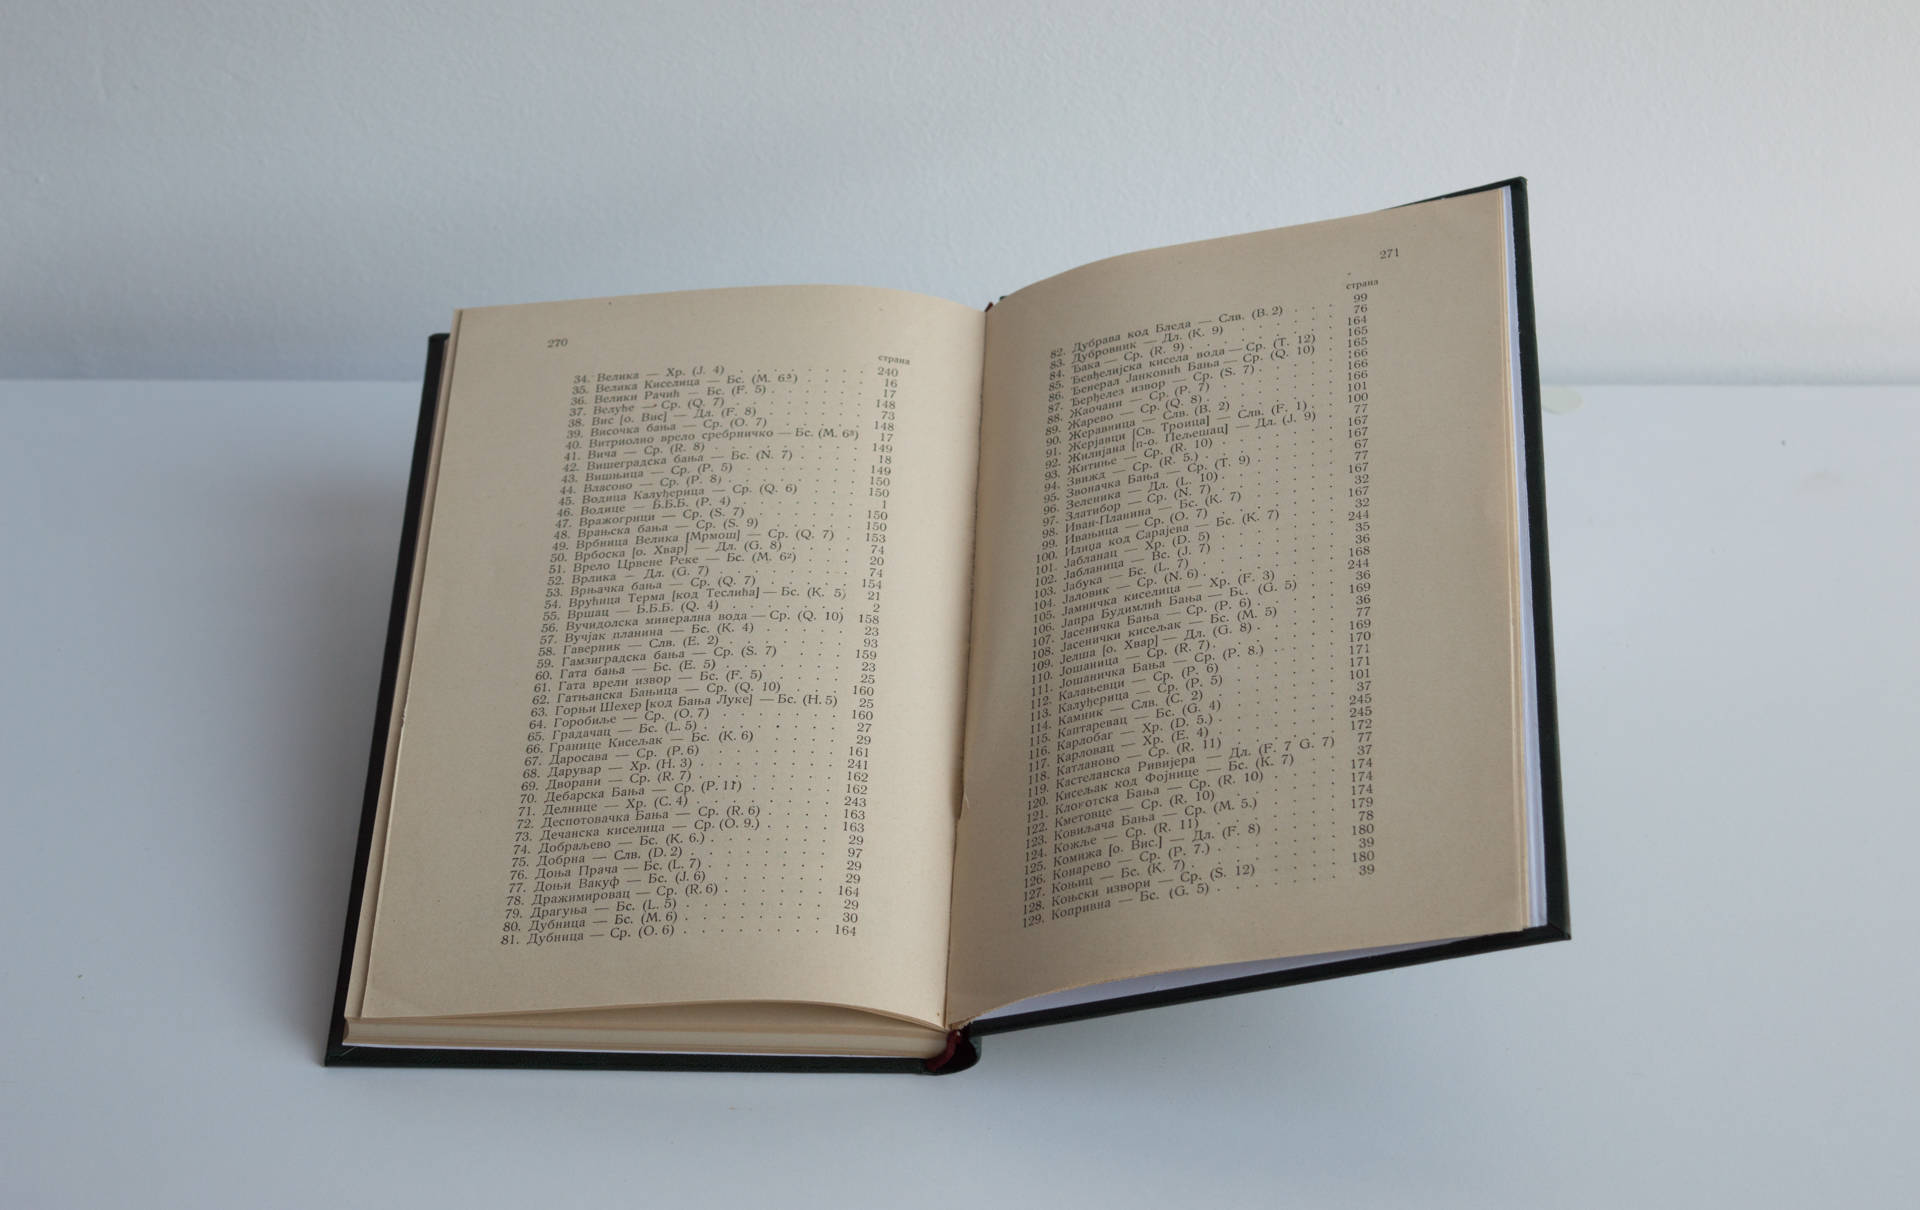 270
страна
34. Велика — Хр. (J. 4) . . . . . . . 240
35. Велика Киселица — Бс. (М. 6³) . . . 16
36. Велики Рачић — Бс. (F. 5) . . . . . . 17
37. Велуће — Ср. (Q. 7) . . . . . . . 148
38. Вис [о. Вис] — Дл. (F. 8) . . . . . . 73
39. Височка бања — Ср. (О. 7) . . . . . 148
40. Витриолно врело сребрничко — Бс. (М. 6³) 17
41. Вича — Ср. (R. 8) . . . . . . . . 149
42. Вишеградска бања — Бс. (N. 7) . . . . 18
43. Вишњица — Ср. (Р. 5) . . . . . . . 149
44. Власово — Ср. (Р. 8) . . . . . . . 150
45. Водица Калуђерица — Ср. (Q. 6) . . . 150
46. Водице — Б.Б.Б. (Р. 4) . . . . . . . 1
47. Вражогрнци — Ср. (S. 7) . . . . . . 150
48. Врањска бања — Ср. (S. 9) . . . . . 150
49. Врбница Велика [Мрмош] — Ср. (Q. 7) . 153
50. Врбоска [о. Хвар] — Дл. (G. 8) . . . . 74
51. Врело Црвене Реке — Бс. (М. 6²) . . . 20
52. Врлика — Дл. (G. 7) . . . . . . . 74
53. Врњачка бања — Ср. (Q. 7) . . . . . 154
54. Врућица Терма [код Теслића] — Бс. (К. 5) 21
55. Вршац — Б.Б.Б. (Q. 4) . . . . . . . 2
56. Вучидолска минерална вода — Ср. (Q. 10) 158
57. Вучјак планина — Бс. (К. 4) . . . . . 23
58. Гаверник — Слв. (Е. 2) . . . . . . . 93
59. Гамзиградска бања — Ср. (S. 7) . . . 159
60. Гата бања — Бс. (Е. 5) . . . . . . . 23
61. Гата врели извор — Бс. (F. 5) . . . . 25
62. Гатњанска Бањица — Ср. (Q. 10) . . . 160
63. Горњи Шехер [код Бања Луке] — Бс. (Н. 5) 25
64. Горобиље — Ср. (О. 7) . . . . . . 160
65. Градачац — Бс. (L. 5) . . . . . . . 27
66. Границе Кисељак — Бс. (К. 6) . . . . 29
67. Даросава — Ср. (Р. 6) . . . . . . . 161
68. Дарувар — Хр. (Н. 3) . . . . . . . 241
69. Дворани — Ср. (R. 7) . . . . . . . 162
70. Дебарска Бања — Ср. (Р. 11) . . . . . 162
71. Делнице — Хр. (С. 4) . . . . . . . 243
72. Деспотовачка Бања — Ср. (R. 6) . . . . 163
73. Дечанска киселица — Ср. (О. 9.) . . . . 163
74. Добраљево — Бс. (К. 6.) . . . . . . 29
75. Добрна — Слв. (D. 2) . . . . . . . 97
76. Доња Прача — Бс. (L. 7) . . . . . . 29
77. Доњи Вакуф — Бс. (Ј. 6) . . . . . . 29
78. Дражимировац — Ср. (R. 6) . . . . . 164
79. Драгуња — Бс. (L. 5) . . . . . . . 29
80. Дубница — Бс. (М. 6) . . . . . . . 30
81. Дубница — Ср. (О. 6) . . . . . . . 164
271
страна
82. Дубрава код Бледа — Слв. (В. 2) . . . 99
83. Дубровник — Дл. (К. 9) . . . . . . 76
84. Ђака — Ср. (R. 9) . . . . . . . . 164
85. Ђевђелијска кисела вода — Ср. (Т. 12) . 165
86. Ђенерал Јанковић Бања — Ср. (Q. 10) . 165
87. Ђерђелез извор — Ср. (S. 7) . . . . . 166
88. Жаочани — Ср. (Р. 7) . . . . . . . 166
89. Жарево — Ср. (Q. 8) . . . . . . . 166
90. Жеравница — Слв. (В. 2) . . . . . . 101
91. Жерјавци [Св. Троица] — Слв. (F. 1) . . 100
92. Жилијана [п-о. Пељешац] — Дл. (Ј. 9) . 77
93. Житиње — Ср. (R. 10) . . . . . . . 167
94. Звижд — Ср. (R. 5.) . . . . . . . 167
95. Звоначка Бања — Ср. (Т. 9) . . . . . 67
96. Зеленика — Дл. (L. 10) . . . . . . . 77
97. Златибор — Ср. (N. 7) . . . . . . . 167
98. Иван-Планина — Бс. (К. 7) . . . . . 32
99. Ивањица — Ср. (О. 7) . . . . . . . 167
100. Илиџа код Сарајева — Бс. (К. 7) . . . 32
101. Јабланац — Хр. (D. 5) . . . . . . . 244
102. Јабланица — Вс. (Ј. 7) . . . . . . . 35
103. Јабука — Бс. (L. 7) . . . . . . . . 36
104. Јаловик — Ср. (N. 6) . . . . . . . 168
105. Јамничка киселица — Хр. (F. 3) . . . . 244
106. Јапра Будимлић Бања — Бс. (G. 5) . . . 36
107. Јасеничка Бања — Ср. (Р. 6) . . . . . 169
108. Јасенички кисељак — Бс. (М. 5) . . . . 36
109. Јелша [о. Хвар] — Дл. (G. 8) . . . . . 77
110. Јошаница — Ср. (R. 7) . . . . . . . 169
111. Јошаничка Бања — Ср. (Р. 8.) . . . . 170
112. Калањевци — Ср. (Р. 6) . . . . . . 171
113. Калуђерица — Ср. (Р. 5) . . . . . . 171
114. Камник — Слв. (С. 2) . . . . . . . 101
115. Каптаревац — Бс. (G. 4) . . . . . . 37
116. Карлобаг — Хр. (D. 5.) . . . . . . . 245
117. Карловац — Хр. (Е. 4) . . . . . . . 245
118. Катланово — Ср. (R. 11) . . . . . . 172
119. Кастеланска Ривијера — Дл. (F. 7 G. 7) 77
120. Кисељак код Фојнице — Бс. (К. 7) . . 37
121. Клокотска Бања — Ср. (R. 10) . . . . 174
122. Кметовце — Ср. (R. 10) . . . . . . 174
123. Ковиљача Бања — Ср. (М. 5.) . . . . 174
124. Кожље — Ср. (R. 11) . . . . . . . 179
125. Комижа [о. Вис.] — Дл. (F. 8) . . . . 78
126. Конарево — Ср. (Р. 7.) . . . . . . . 180
127. Коњиц — Бс. (К. 7) . . . . . . . . 39
128. Коњски извори — Ср. (S. 12) . . . . . 180
129. Копривна — Бс. (G. 5) . . . . . . . 39